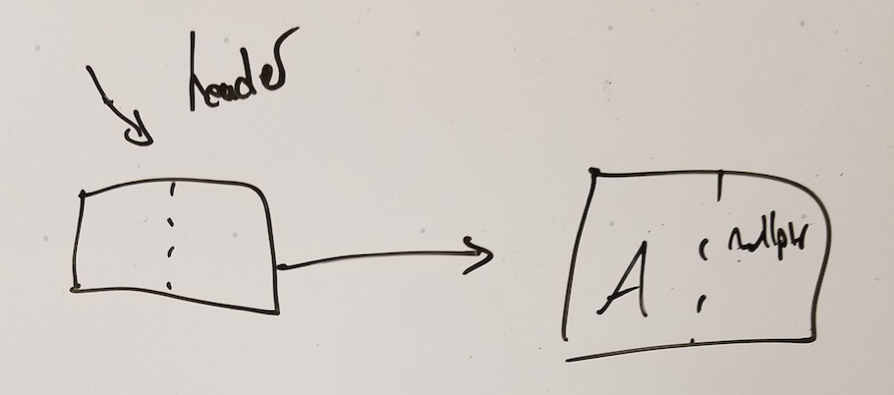 header
A
nullptr